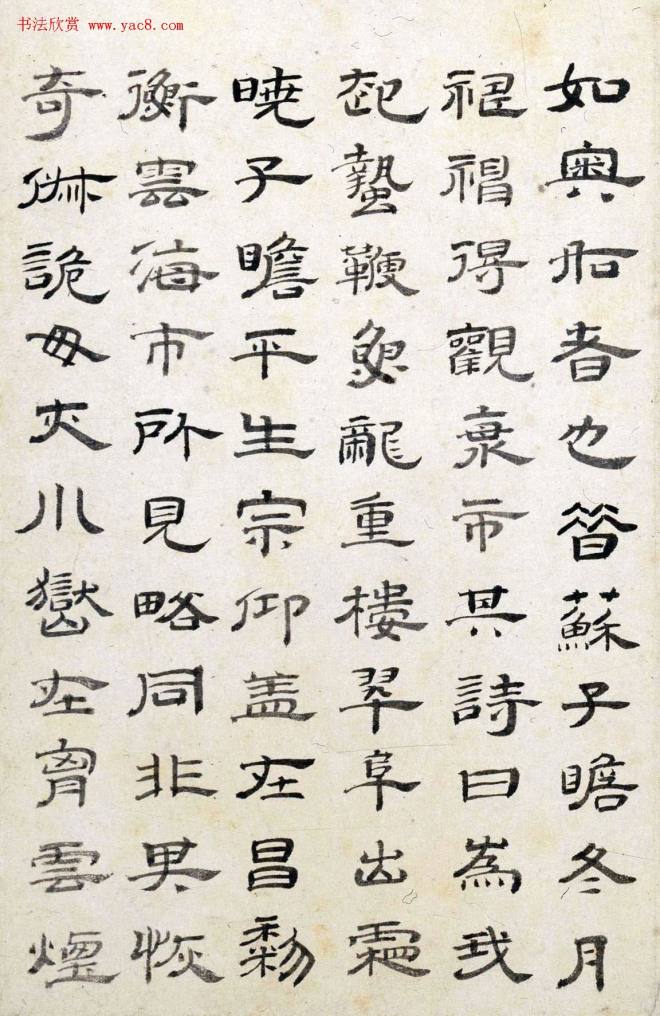 书法欣赏
www.yac8.com
如奧者也昔蘇子瞻冬月
得觀市其詩曰為我
起蟄鞭魚龍重樓翠阜出霜
曉子瞻平生宗仰盖在昌黎
衡雲海市所見略同非異恢
奇俶詭毋大小嶽在胷雲煙